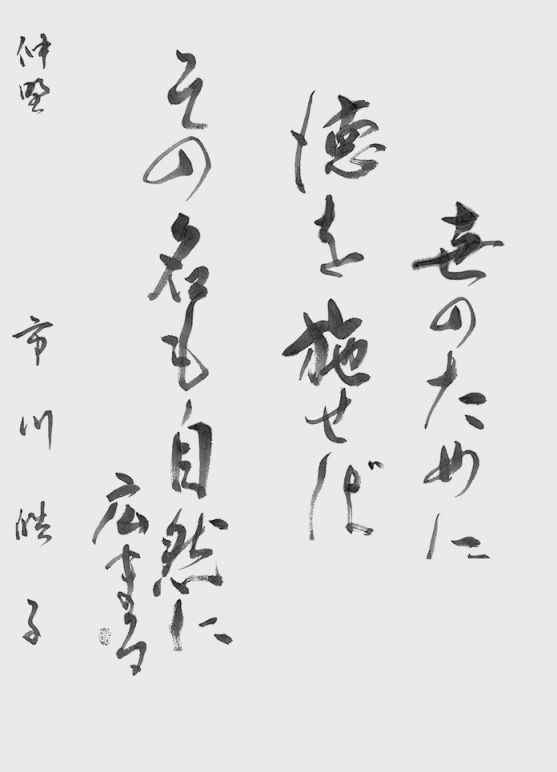 世のために
徳を施せば
その名も自然に
広まる
仲野 市川皓子